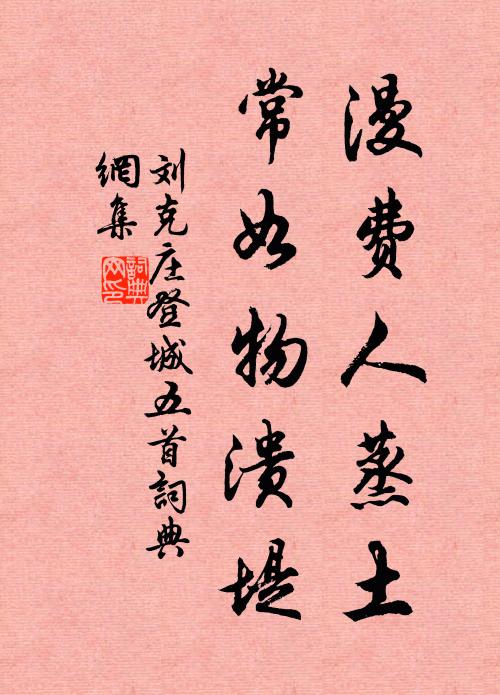 漫费人蒸土
常如物溃堤
刘克庄登城五首詞典
網集
詞典網印